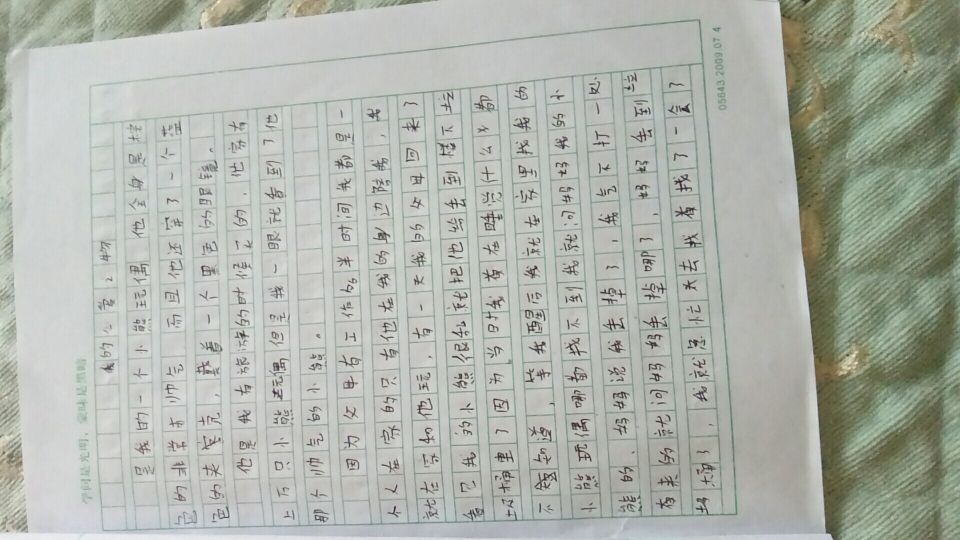 学问是光明，蒙昧是黑暗
我的心爱之物
是我的一个小熊玩偶 他全身是棕
色的非常才帅气，而且他还穿了一个蓝
色的夹克，戴着一个黑色的眼镜。
他是我有旅沫的时候买的，他家有
上万只小熊玩偶但是我一眼就看到了他
那个帅气的小熊。
因为父母有工作的半时间我都是一
个人在家的只有他在我的身边陪我，我
就在家和他玩，有一天我的父母回来了
看它我的小熊很乱就把他给丢到楼下垃
圾桶里了因为当时我着在睡觉什么义都
不知道，等我醒后我就在家里找我的
小熊玩偶哪都找不到我就问妈妈我的小
熊的、妈妈说我丢掉了，我气不打一处
有来的就问妈妈丢掉哪了，妈妈丢到垃
圾桶了，我就急忙去去找着找了一会了
05643.2009.07.4